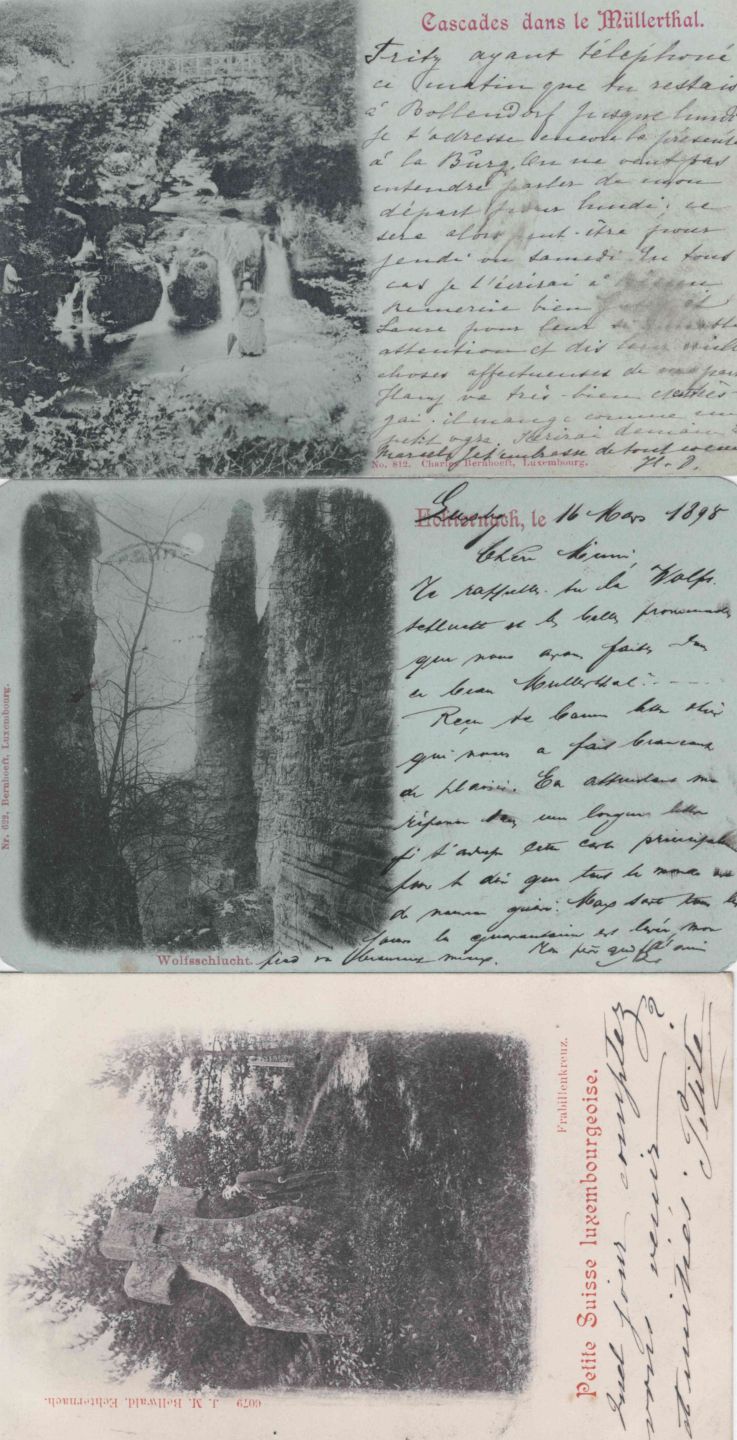 Cascades dans le Müllerthal.
Fritz ayant téléphoné
ce matin que tu restais
à Bollendorf jusque lundi
je t'adresse encore la présente
à la Burg. On ne veut pas
entendre parler de mon
départ pour lundi; ce
sera alors peut-être pour
jeudi ou samedi. En tous
cas je t'écrirai à
Remercie bien et
Laure pour leur
attention et dis leur
choses affectueuses de ma part
Hary va très-bien et très
gai-il mange comme un
petit ogre. J'écrirai demain à
Marcel. Je t'embrasse de tout coeur
No. 812. Charles Bernhoeft, Luxembourg.
H. P.
Echternach, le 16 Mars 1898
Te rappelles-tu la Wolfs
schlucht et les belles promenades
que nous avons faites dans
ce beau Mullerthal?
Reçu ta bonne lettre
qui nous a fait beaucoup
de plaisir. En attendant ma
réponse dans une longue lettre
je t'adresse cette carte principalement
pour te dire que tout le monde est
de nouveau guéri. Max sort tous les
jours la quarantaine est levée, mon
pied va beaucoup mieux.
Nr. 622, Bernhoeft, Luxembourg.
Wolfsschlucht.
Frabillenkreuz.
Petite Suisse luxembourgeoise.
Quel jour comptez
vous venir?
et amitiés. Petite
6079 J. M. Bellwald, Echternach.